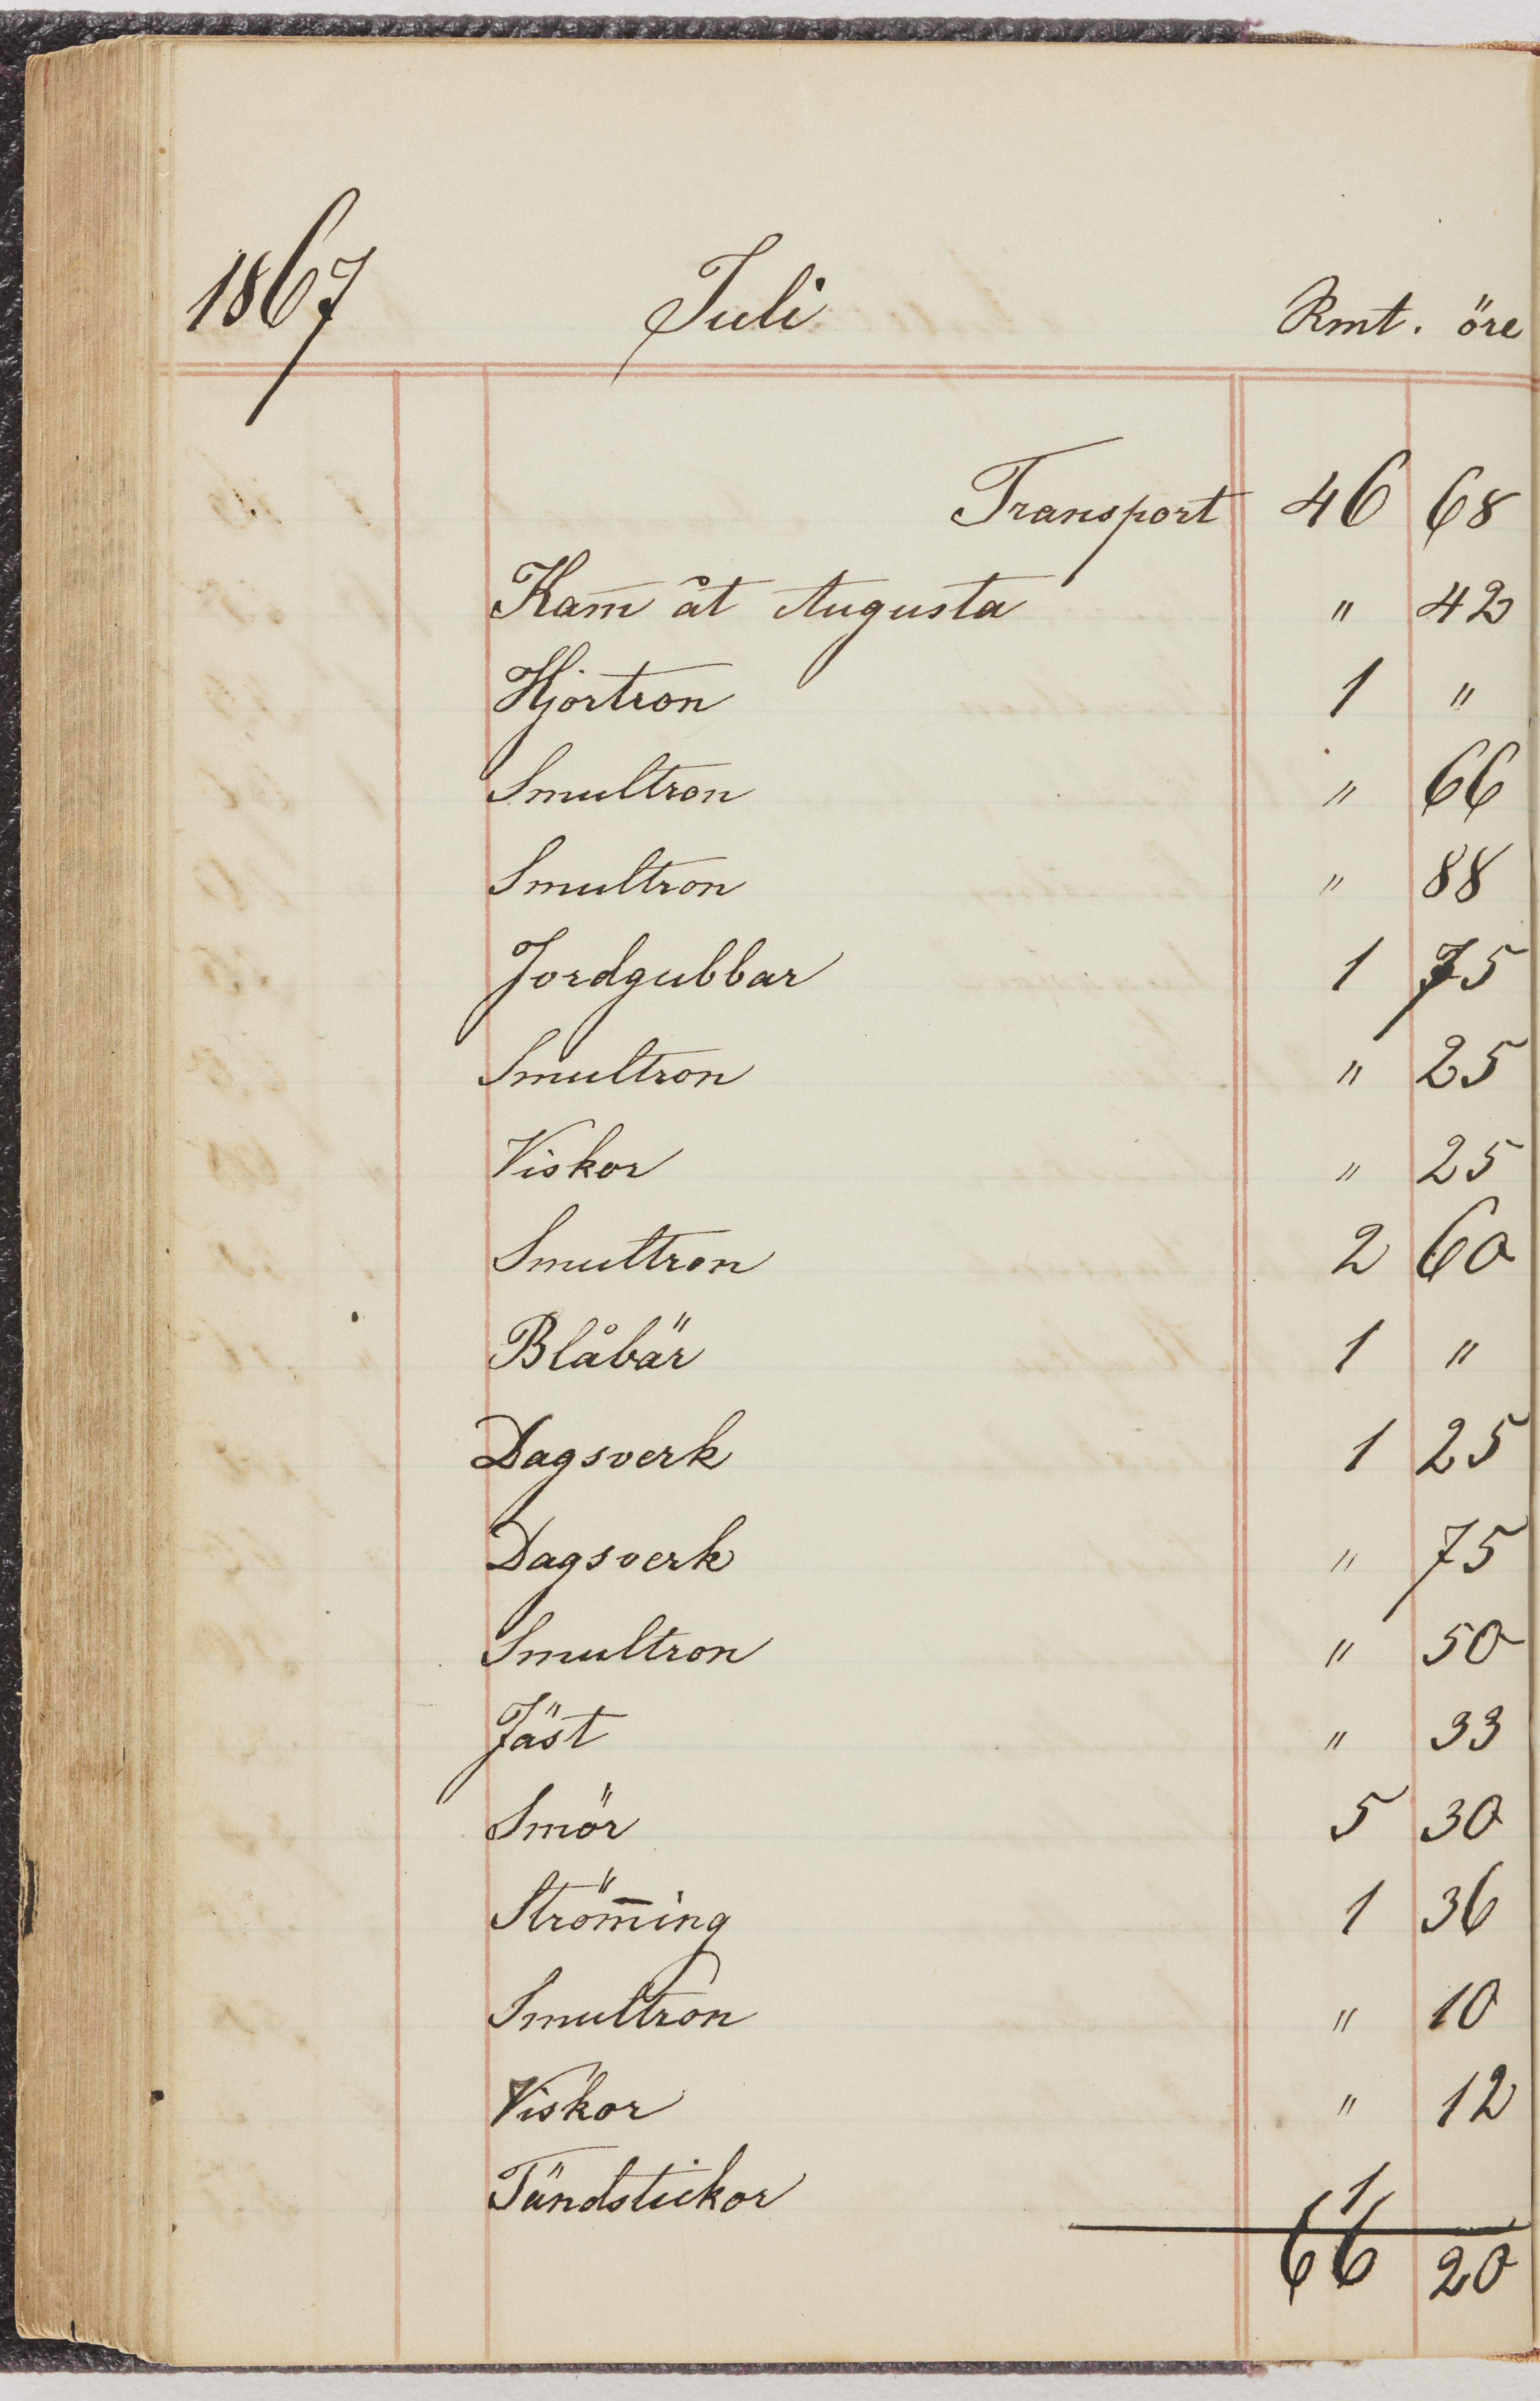 1867 Juli Rmt. öre
Transport 46 68
Kam̄ åt Augusta " 42
Hjortron 1 "
Smultron " 66
Smultron " 88
Jordgubbar 1 75
Smultron " 25
Viskor " 25
Smultron 2 60
Blåbär 1 "
Dagsverk 1 25
Dagsverk " 75
Smultron " 50
Jäst " 33
Smör 5 30
Ström̄ing 1 36
Smultron " 10
Viskor " 12
Tändstickor 1
66 20